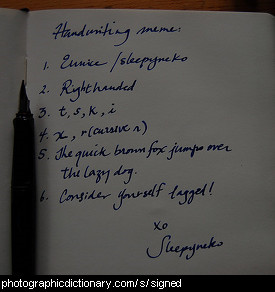 Handwriting meme:
1. Eunice / sleepyneko
2. Right handed
3. t, s, k, i
4. x, r (cursive r)
5. The quick brown fox jumps over
the lazy dog.
6. Consider yourself tagged!
xo
Sleepyneko
photographicdictionary.com/s/signed